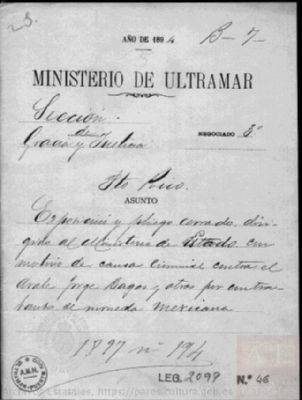 AÑO DE 1894
B-7-
MINISTERIO DE ULTRAMAR
Sección
de
Gracia y Justicia
NEGOCIADO 3º
Pto Rico.
ASUNTO
Exposición y pliego cerrado diri-
gido al Ministerio de Estado con
motivo de causa criminal contra el
árabe Jorge Dagas y otros por contra-
bando de moneda mexicana
1897 nº 194
A.H.N.
LEG. 2099 N.º 46